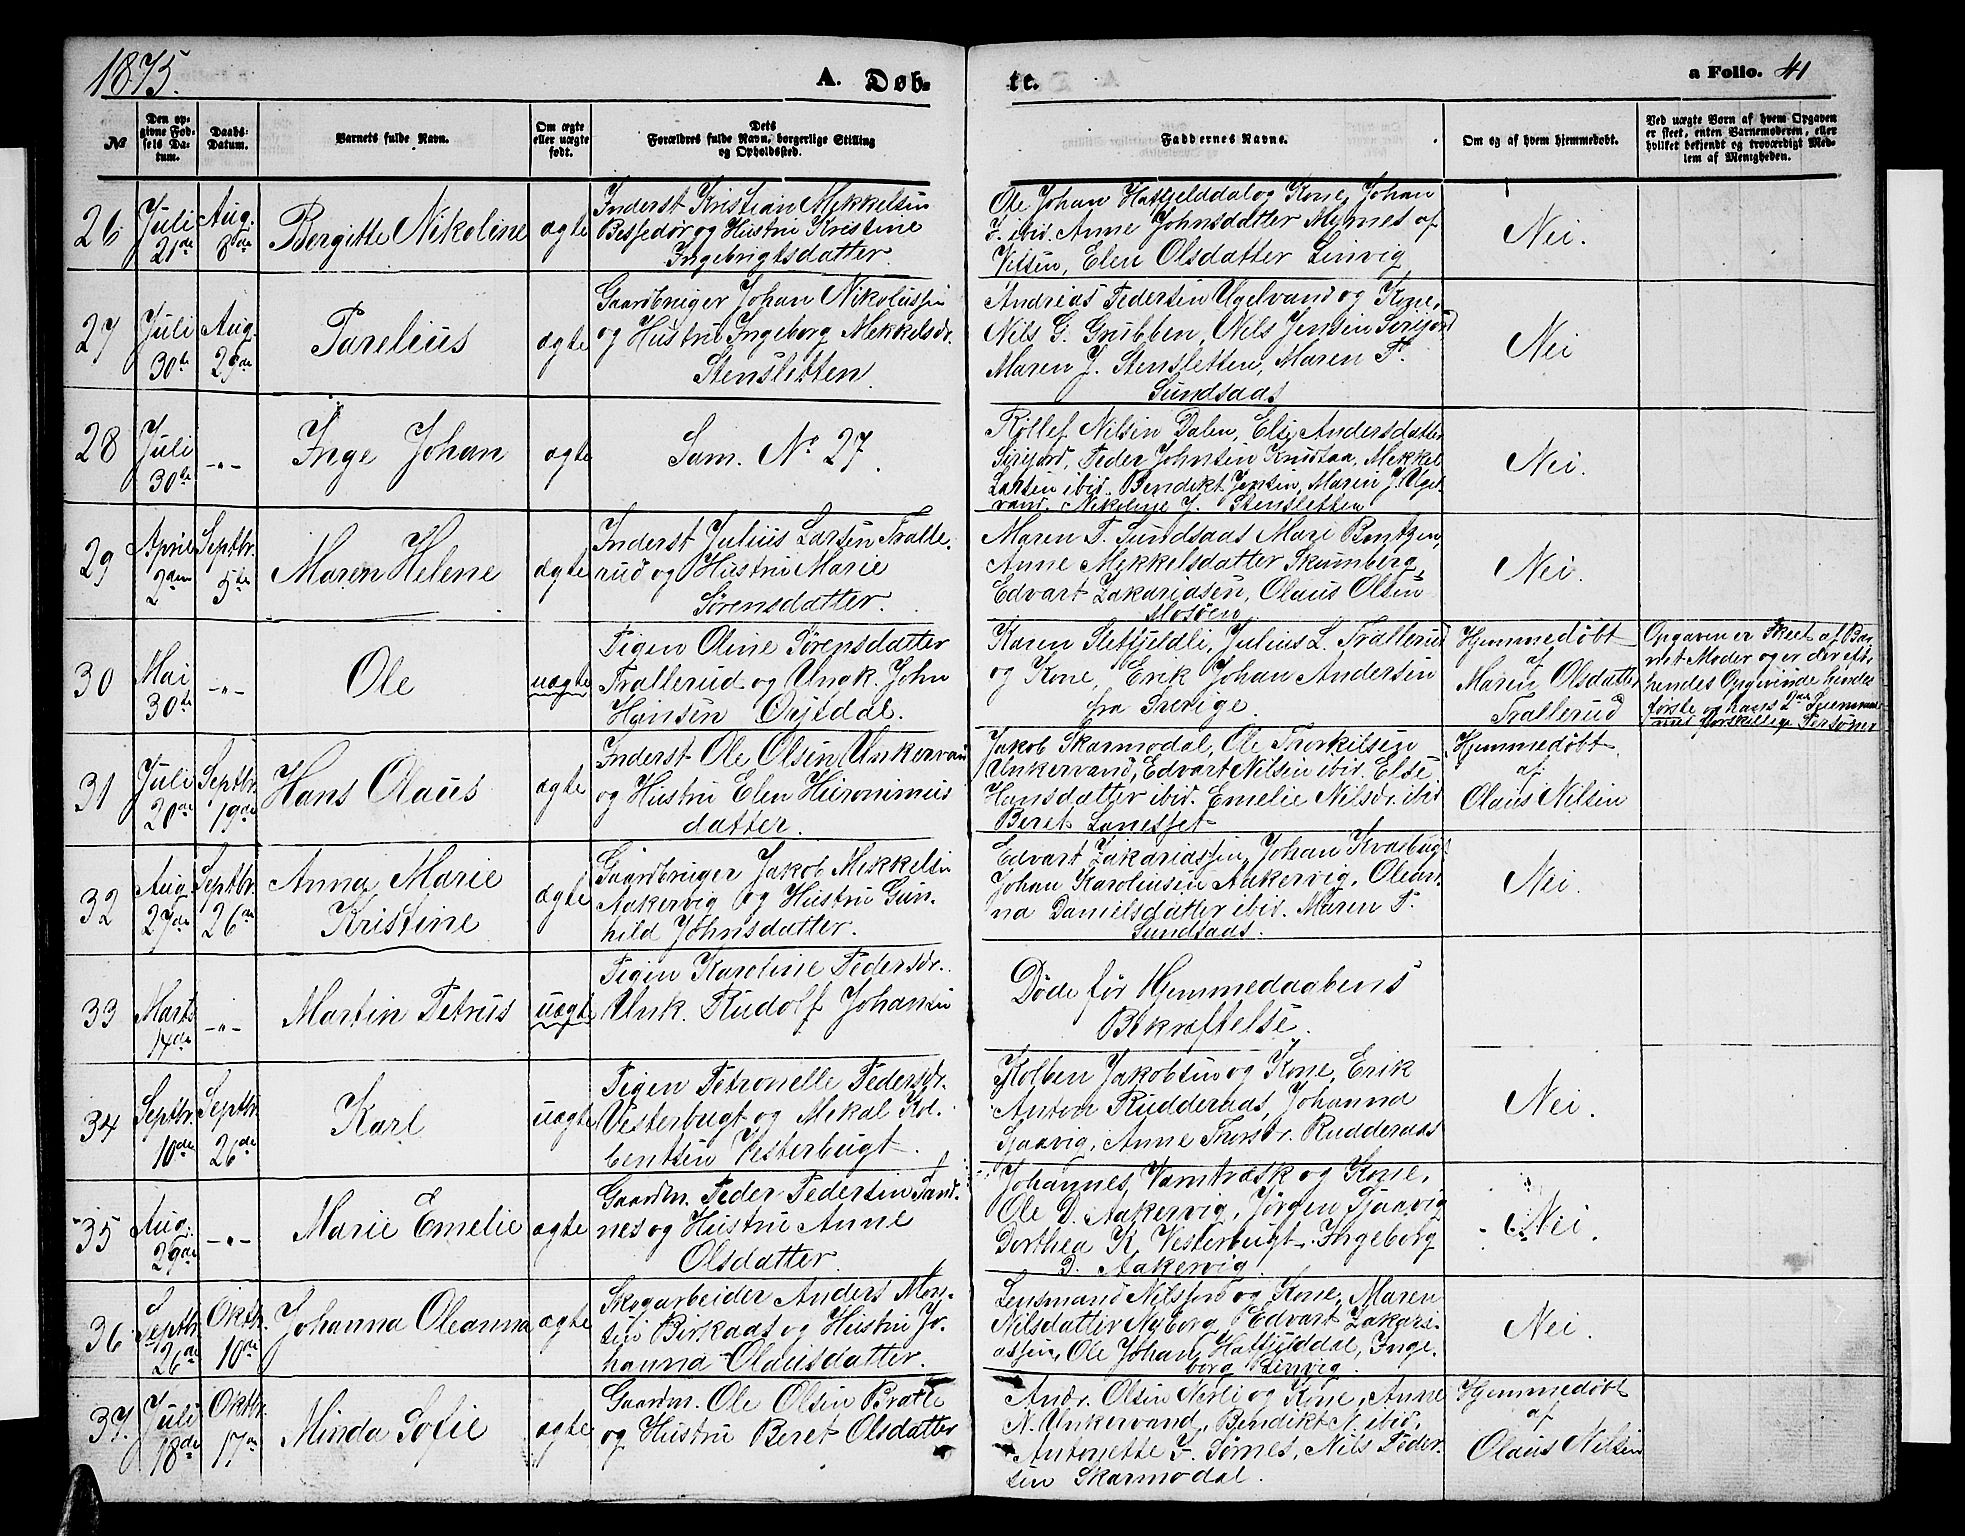 1875.
A. Døb-
te.
a Folio. 41
No
Den opgivne Fødsels Datum.
Daabs-Datum.
Barnets fulde Navn.
Om ægte eller uægte født.
Dets Forældres fulde Navn, borgerlige Stilling og Opholdssted.
Faddernes Navne.
Om og af hvem hjemmedøbt.
Ved uægte Børn af hvem Opgaven er skeet, enten Barnemoderen, eller hvilket bekjendt og troværdigt Medlem af Menigheden.
26
Juli 21de
Aug. 8de
Bergitte Nikoline
ægte
Inderst Kristian Mekkelsen
Bessedør og Hustru Kristine
Ingebrigtsdatter.
Ole Johan Hatfjelddal og Kone, Johan
J. ibid. Anne Johnsdatter Mynes af
Vefsen, Elen Olsdatter Linvig
Nei.
27
Juli 30te
Aug. 29de
Parelius
ægte
Gaardbruger Johan Nikolussen
og Hustru Ingeborg Mekkelsdr.
Stensletten.
Andreas Pedersen Ugelvand og Kone,
Nils G. Grubben, Nils Jensen Sirijord
Maren J. Stensletten, Maren P.
Sundsaas
Nei
28
Juli 30te
-"-
Inge Johan
ægte
Sam. No 27.
Rollef Nilsen Dalen, Else Andersdatter
Sirijord, Peder Johnsen Knudtaa, Mekkel
Larsen ibid. Bendikt Jensen, Maren J. Ugel-
vand. Nikoline J. Stensletten
Nei.
29
April 2den
Septbr. 5te
Maren Helene
ægte
Inderst Julius Larsen Tralle-
rud og Hustru Marie
Sørensdatter.
Maren P. Sundsaas Mari Bentzen,
Anne Mekkelsdatter Skumberg,
Edvart Zakariasen, Olaus Olsen
Mosøen
Nei.
30
Mai 30te
-"-
Ole
uægte
Pigen Oline Sørensdatter
Trallerud og Ungk. John
Hansen Oxfjdal.
Karen Sletfjeldli, Julius L. Trallerud
og Kone, Erik Johan Andersen
fra Sverige.
Hjemmedøbt
af
Maren Olsdatter
Trallerud
Opgaven er skeet af Bar-
net Moder og er der efter
hendes Opgivende hendes
første og hans 2det Leiermaal
med forskjellige Personer
31
Juli 20de
Septbr. 19de
Hans Olaus
ægte
Inderst Ole Olsen Unkervand
og Hustru Elen Hieronimus
datter.
Jakob Skarmodal, Ole Thorkilsen
Unkervand, Edvart Nilsen ibid. Else
Hansdatter ibid. Emelie Nilsdr. ibid
Beret Zanesset
Hjemmedøbt
af
Olaus Nilsen
32
Aug. 27de
Septbr. 26de
Anna Marie
Kristine
ægte
Gaardbruger Jakob Mekkelsen
Aakervig og Hustru Gun-
hild Johnsdatter.
Edvart Zakariassen, Johan Kvasbugt
Johan Karolinsen Aakervig, Olean-
na Danielsdatter ibid. Maren P.
Sundsaas.
Nei.
33
Marts 14de
-"-
Martin Petrus
uægte
Pigen Karoline Pedersdr.
Unk. Rudolf Johansen
Døde før Hjemmedaabens
Bekræftelse.
34
Septbr. 10de
Septbr. 26de
Karl
uægte
Pigen Petronelle Pedersdr.
Vesterbugt og Mekal Kol-
bentsen Vesterbugt.
Kolben Jakobsen og Kone, Erik
Anton Rudderaas, Johanna
Sjaavig, Anne Thorsdr. Rudderaas
Nei.
35
Aug. 29de
-"-
Marie Emelie
ægte
Gaardm. Peder Pedersen Sand-
nes og Hustru Anne
Olsdatter.
Johannes Vamtræsk og Kone,
Ole D. Aakervig, Jørgen Sjaavig
Dorthea K. Vesterbugt. Ingeborg
D. Aakervig.
Nei.
36
Septbr. 26de
Oktbr. 10de
Johanna Oleanna
ægte
Skogarbeider Anders Mon-
sen Birkaas og Hustru Jo-
hanna Olausdatter.
Lensmand Nilsjord og Kone, Maren
Nilsdatter Nyborg, Edvart Zakari-
assen, Ole Johan Hatfjelddal, Inge-
borg Linvig.
Nei.
37.
Juli 18de
Oktbr. 17de
Minda Sofie
ægte
Gaardm. Ole Olsen Bratle
og Hustru Beret Olsdatter
Andr. Olsen Nerli og Kone, Anne
N. Unkervand, Bendikt N. ibid.
Antonette J. Tømes, Nils Peder-
sen Skarmodal.
Hjemmedøbt
af
Olaus Nilsen